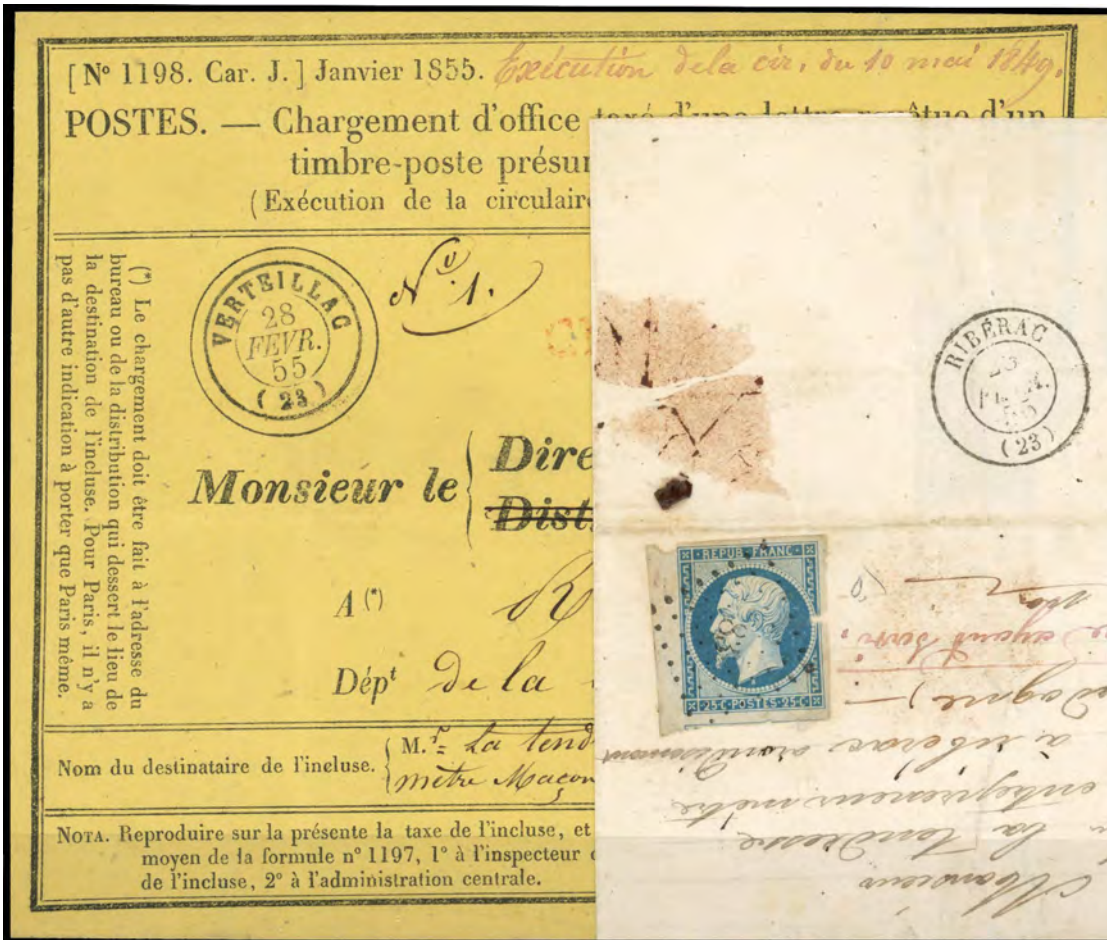 [ Nº 1198. Car. J. ] Janvier 1855. Exécution de la cir. du 10 mai 1849.
POSTES. — Chargement d'office taxé d'une lettre revêtue d'un
timbre-poste présu
(Exécution de la circulair
(*) Le chargement doit être fait à l'adresse du
bureau ou de la distribution qui dessert le lieu de
la destination de l'incluse. Pour Paris, il n'y a
pas d'autre indication à porter que Paris même.
VERTEILLAC
28
FEVR.
55
(23)
Nº 1.
Monsieur le
Dire
Dist
A (*)
R
Dépt de la
Nom du destinataire de l'incluse.
M.r La tend
mètre Maçon
NOTA. Reproduire sur la présente la taxe de l'incluse, et
moyen de la formule nº 1197, 1º à l'inspecteur
de l'incluse, 2º à l'administration centrale.
RIBÉRAC
(23)
REPUB. FRANC.
25·C·POSTES·25·C
Monsieur
la tendresse
entrepreneur mètre
à riberac arondisemant
ayant servi.